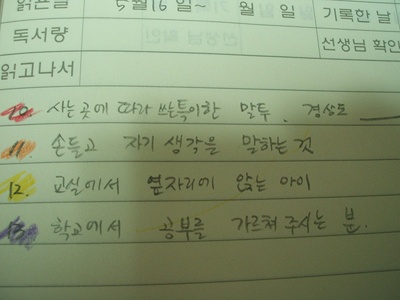 읽은날 5월16일~ 월 일 기록한 날
독서량 선생님 확인
읽고나서
10. 사는 곳에 따라 쓰는 특이한 말투. 경상도 ____
11. 손들고 자기 생각을 말하는 것
12. 교실에서 옆자리에 앉는 아이
13. 학교에서 공부를 가르쳐 주시는 분.